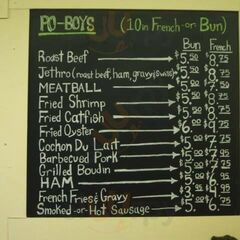 PO-BOYS (10in French-or Bun)
Bun French
Roast Beef $5.50 $8.75
Jethro (roast beef, ham, gravy & swiss) $5.50 $8.75
MEATBALL $5.50 $8.
Fried Shrimp $5.50 $8.
Fried Catfish $5.50 $8.75
Fried Oyster $6. $9.75
Cochon Du Lait $5.00 $7.95
Barbecued Pork $5.00 $7.95
Grilled Boudin $5.00 $7.
HAM $5.00 $7.95
French Fries & Gravy $3. $6.
Smoked-or-Hot Sausage $5. $6.75